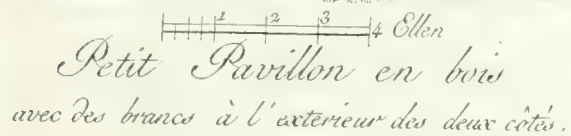 1 2 3 4 Ellen
Petit Pavillon en bois
avec des brancs à l'exterieur des deux côtés.